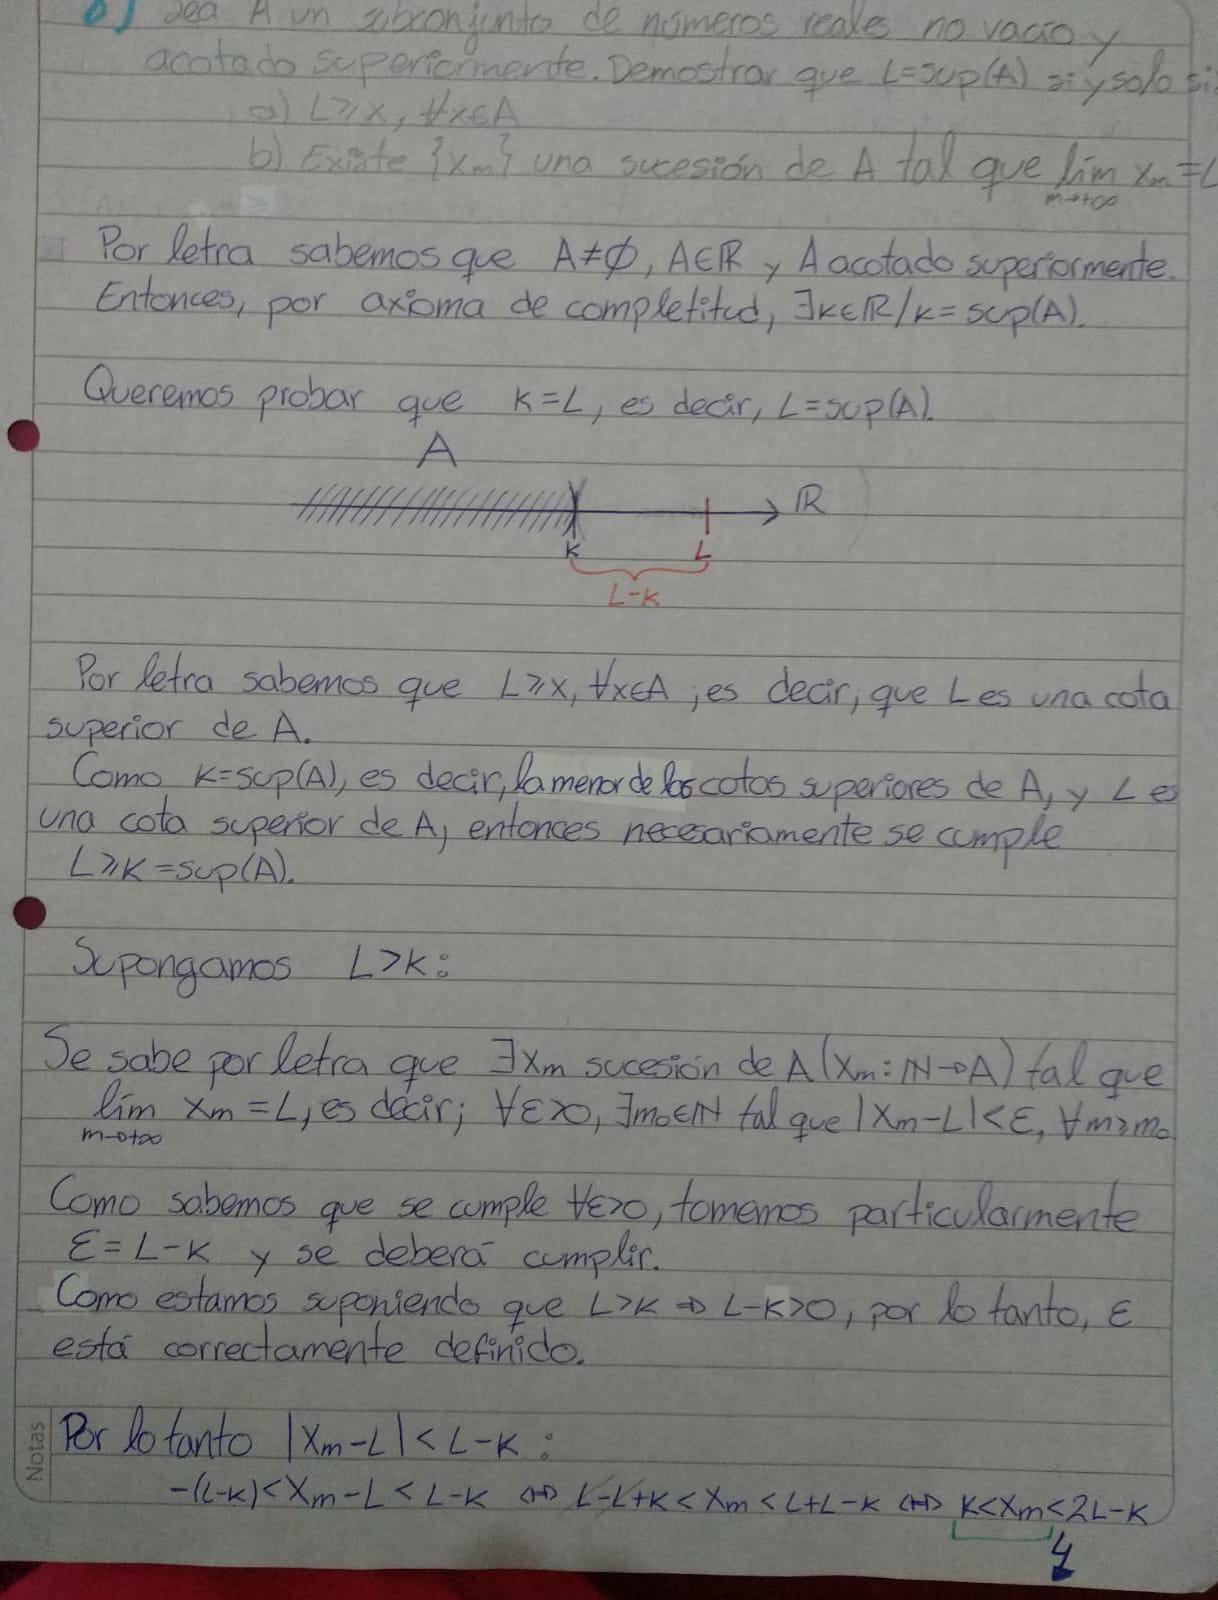 6) Sea A un subconjunto de números reales no vacío y
acotado superiormente. Demostrar que L=sup(A) si y solo si:
a) L⩾x, ∀x∈A
b) Existe {xₘ} una sucesión de A tal que lim xₘ=L
m→+∞
Por letra sabemos que A≠∅, A∈ℝ y A acotado superiormente.
Entonces, por axioma de completitud, ∃k∈ℝ/k=sup(A).
Queremos probar que k=L, es decir, L=sup(A).
A
ℝ
k L
L-k
Por letra sabemos que L⩾x, ∀x∈A, es decir, que L es una cota
superior de A.
Como k=sup(A), es decir, la menor de las cotas superiores de A, y L es
una cota superior de A, entonces necesariamente se cumple
L⩾k=sup(A).
Supongamos L>k:
Se sabe por letra que ∃xₘ sucesión de A (xₘ: ℕ→A) tal que
lim xₘ = L, es decir; ∀ε>0, ∃m₀∈ℕ tal que |xₘ-L|<ε, ∀m⩾m₀
m→+∞
Como sabemos que se cumple ∀ε>0, tomemos particularmente
ε=L-k y se deberá cumplir.
Como estamos suponiendo que L>k ⇒ L-k>0, por lo tanto, ε
está correctamente definido.
Notas
Por lo tanto |xₘ-L|<L-k:
-(L-k)<xₘ-L<L-k ⇔ L-L+k<xₘ<L+L-k ⇔ k<xₘ<2L-k